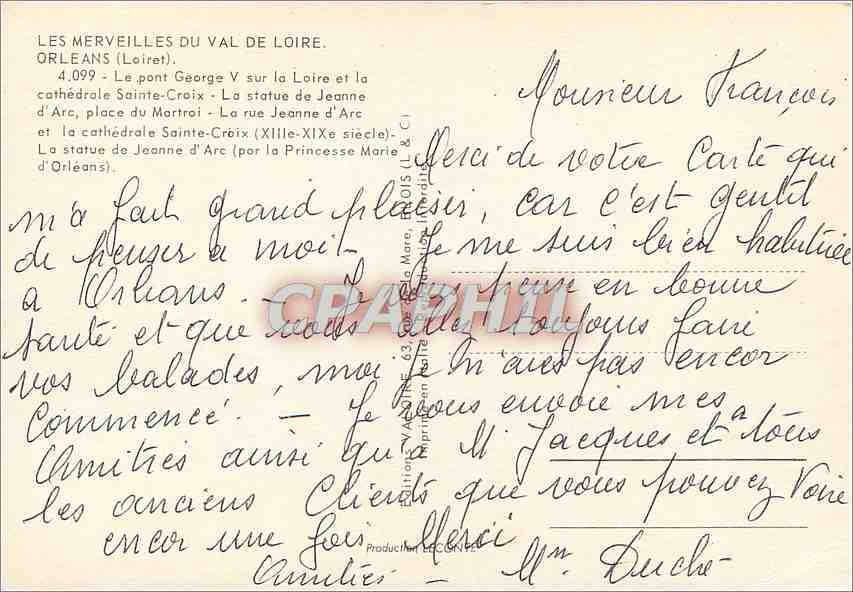 LES MERVEILLES DU VAL DE LOIRE.
ORLEANS (Loiret).
4.099 - Le pont George V sur la Loire et la
cathédrale Sainte-Croix - La statue de Jeanne
d'Arc, place du Martroi - La rue Jeanne d'Arc
et la cathédrale Sainte-Croix (XIIIe-XIXe siècle)-
La statue de Jeanne d'Arc (par la Princesse Marie
d'Orléans).
Monsieur François
Merci de votre Carte qui
m'a fait grand plaisir, car c'est gentil
de penser a moi - Je me suis bien habituée
a Orléans. - Je vous pense en bonne
santé et que vous allez toujours faire
vos balades, moi je n'ai pas encor
Commencé. - Je vous envoie mes
Amitiés ainsi qu'a Mr Jacques et a tous
les anciens Clients que vous pouvez Voire
encor une fois Merci
Amitiés - Mme Duché
Editions VALOIRE, 63, rue de la Mare, BLOIS (L & C)
Imprimé en Italie - Reproduction interdite
Production LECONTE
CPAPHIL